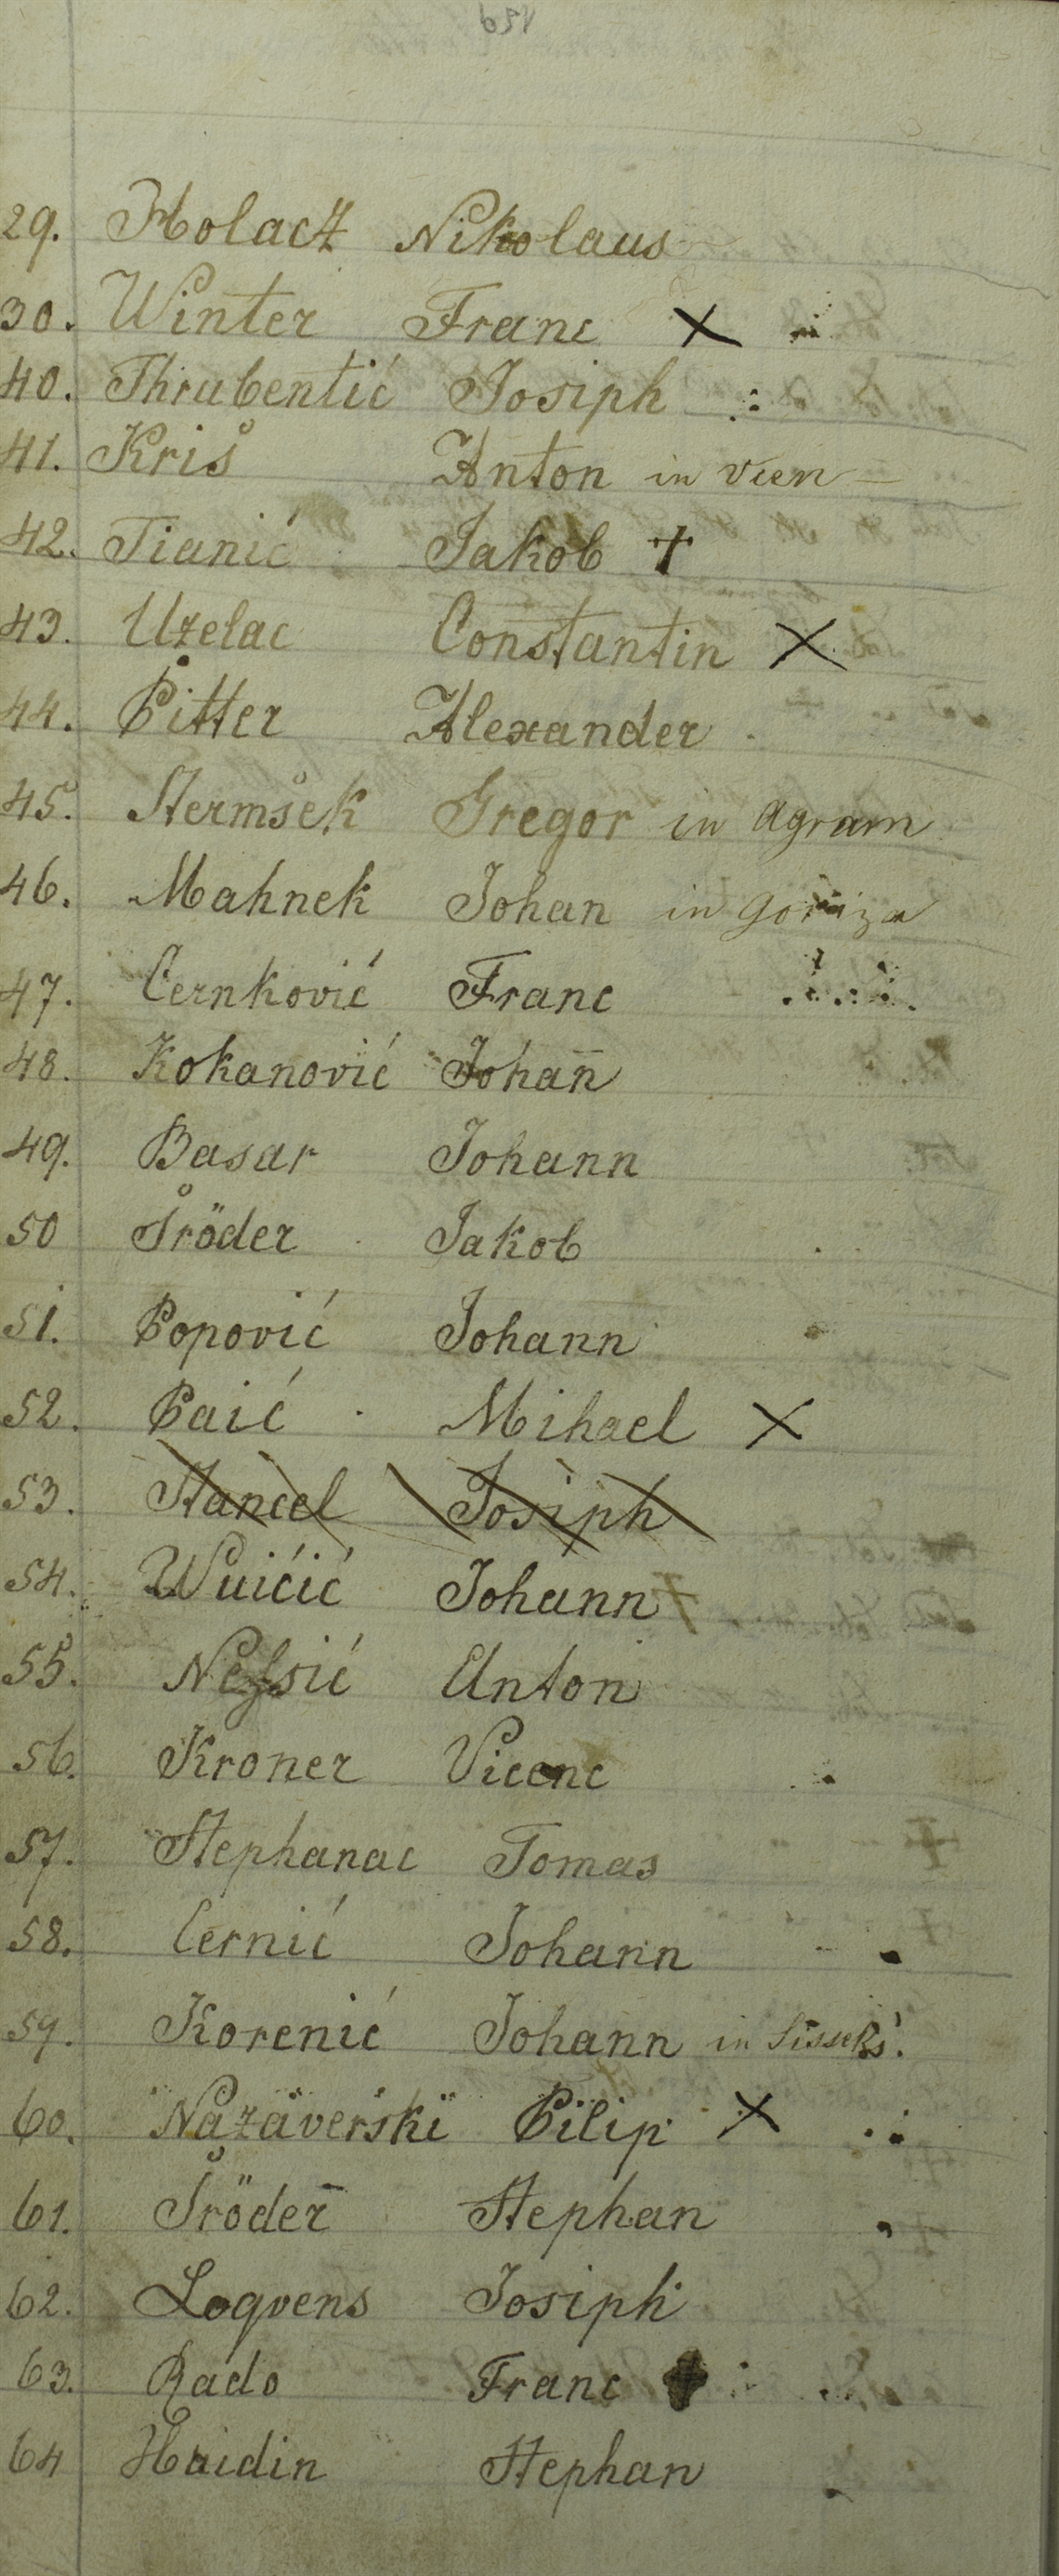 29. Holacz Nikolaus
30. Winter Franc X
40. Thrubentić Josiph
41. Kriš Anton in Vien
42. Tianić Jakob †
43. Uzelac Constantin X
44. Pitter Alexander
45. Stermšek Gregor in Agram
46. Mahnek Johan in Goriza
47. Cernković Franc
48. Kokanović Johan̄
49. Basar Johann
50 Šröder Jakob
51. Popović Johann
52. Paić Mihael X
53. Stancel Josiph
54. Wuićić Johann †
55. Neſsić Anton
56. Kroner Vicenc
57. Stephanac Tomas
58. Cernić Johann
59. Korenić Johann in Sissek
60. Nazaverski Pilip X
61. Šröder Stephan
62. Loqvens Josiph
63. Rado Franc ✝
64 Haidin Stephan